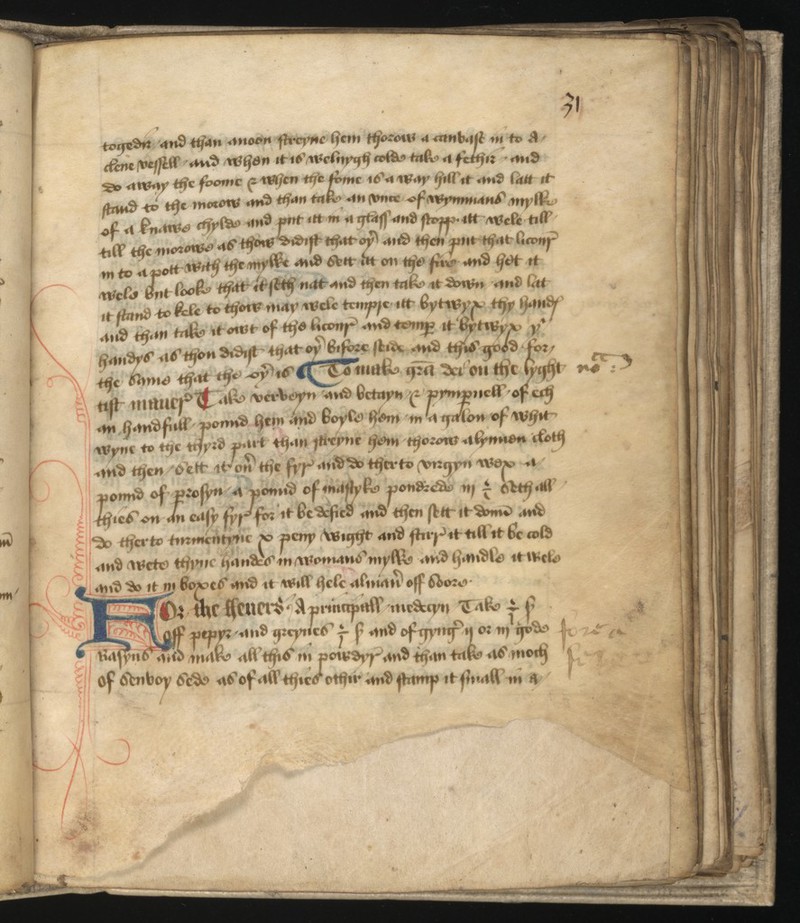 31
togedir and than anoon streyne hem thorow a canvase in to a
clene vessell and when it is welnygh colde take a fethir and
do away the foome & when the fome is a way hill it and latt it
stand to the morow and than take an vnce of wymmans mylke
of a knawe chylde and put itt in a glass and stopp itt wele till
till the morowe as thow didist that oyr and then put that licour
in to a pott with the mylke and sett itt on the fire and het it
wele but looke that it seth nat and then take it down and latt
it stand to kele to thow may wele tempre itt bytwyx thy handes
and than take it owt of the licour and temp it bytwyx yr
handys as thou didist that oyr bifore seide and this good for
the same that the oyr is To make gra dei on the lyght
tist maner Take verveyn and betayn & pympernell of ech
an handfull pound hem and boyle hem in a galon of whit
wyne to the thyrd part than streyne hem thorow a lynnen cloth
and then sett it on the fyr and do therto virgyn wex a
pound of rosyn a pound of mastyke poudrede iij ℥ seth all
thies on an easy fyr for it be desied and then sett it doun and
do therto turmentyne x peny wight and stur it till it be cold
and wete thyne handes in womans mylke and handle it wele
and do it in boxes and it will hele alman off soore
For the ffeuers A principall medecyn Take ℥ ß
off pepyr and greynes ℥ ß and of gyngr ij or iij gode
Rasyns and make all this in powdyr and than take as moch
of Senvoy sede as of all thies othir and stamp it small in a